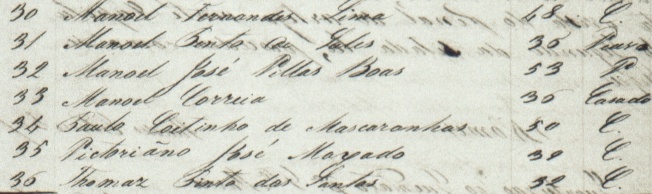 30 Manoel Fernandes Lima 48 C.
31 Manoel Pinto de Sales 36
32 Manoel José Villas Boas 53
33 Manoel Correia 36 Casado
34 Paulo Coitinho de Mascaranhas 50 C.
35 Victoriãno José Moxado 39 C.
36 Thomaz Pinto dos Santos 39 C.